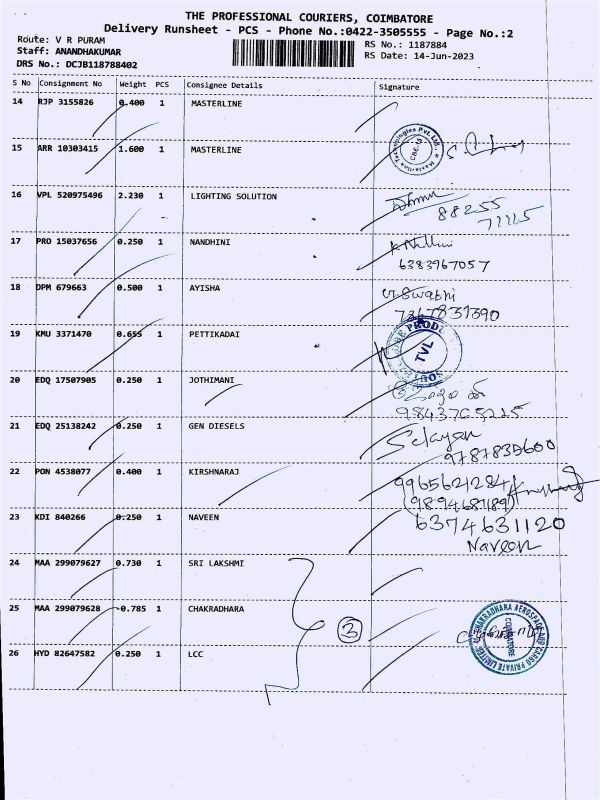 THE PROFESSIONAL COURIERS, COIMBATORE
Delivery Runsheet - PCS - Phone No.:0422-3505555 - Page No.:2
Route: V R PURAM
Staff: ANANDHAKUMAR
DRS No.: DCJB118788402
RS No.: 1187884
RS Date: 14-Jun-2023
S No Consignment No Weight PCS Consignee Details Signature
14 RJP 3155826 0.400 1 MASTERLINE
15 ARR 10303415 1.600 1 MASTERLINE
16 VPL 520975496 2.230 1 LIGHTING SOLUTION
88255
17 PRO 15037656 0.250 1 NANDHINI
6383967057
18 DPM 679663 0.500 1 AYISHA
7367831390
19 KMU 3371470 0.655 1 PETTIKADAI
TVL
20 EDQ 17507905 0.250 1 JOTHIMANI
9843765225
21 EDQ 25138242 0.250 1 GEN DIESELS
Selayan
9787835600
22 PON 4538077 0.400 1 KIRSHNARAJ
9965621284
9894687189
23 KDI 840266 0.250 1 NAVEEN
6374631120
Naveen
24 MAA 299079627 0.730 1 SRI LAKSHMI
25 MAA 299079628 0.785 1 CHAKRADHARA
3
CHAKRADHARA AEROSPACE AND CARGO PRIVATE LIMITED
COIMBATORE
26 HYD 82647582 0.250 1 LCC